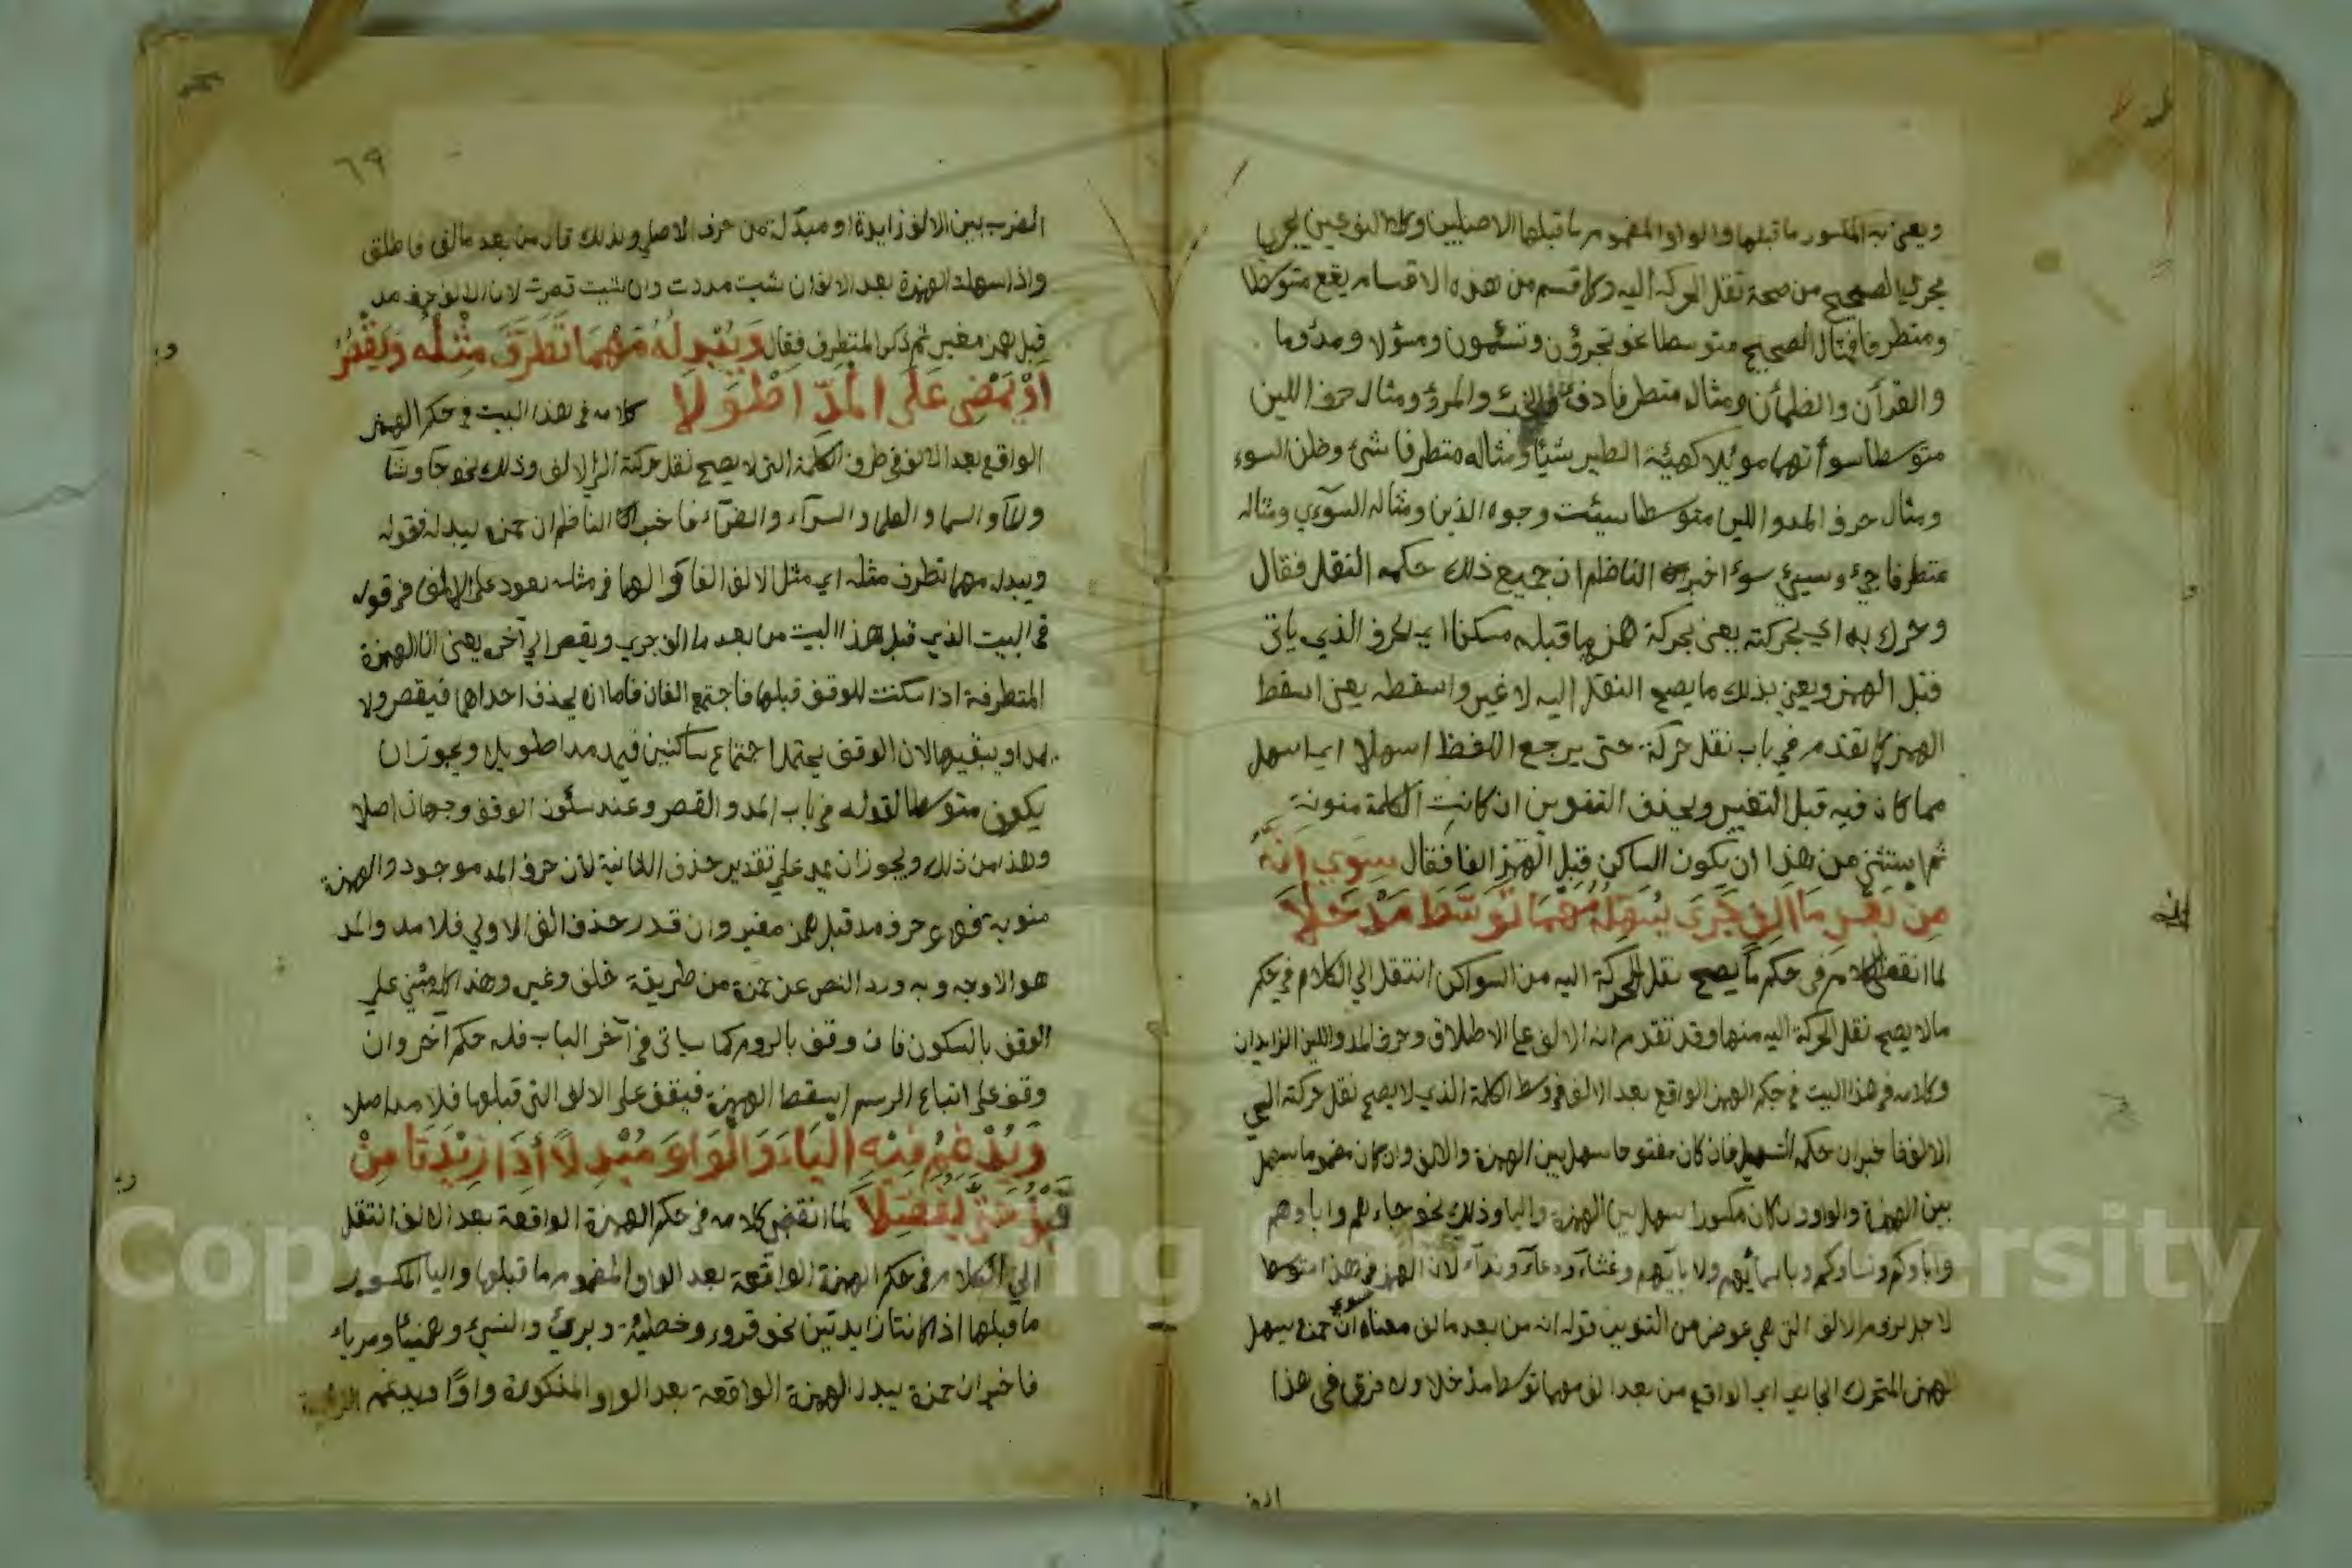 ويعني به المكسور ما قبلها والواو المضموم ما قبلها الاصليين وكلا النوعين يجريا
مجري الصحيح من صحة نقل الحركة اليه وكل قسم من هذه الاقسام يقع متوسطا
ومتطرفا فمثال الصحيح متوسطا نحو تجرؤن وتسئمون ومسؤلا ومذؤما
والقرآن والظمأن ومثال متطرفا دفئ والخبء والمرؤ ومثال حرف اللين
متوسطا سوأتهما موئلا كهيئة الطير شيئا ومثاله متطرفا شئ وظن السوء
ومثال حرف المد واللين متوسطا سيئت وجوه الذين ومثاله السوءي ومثاله
متطرفا جئ وسيئ سوء اخبر الناظم ان جميع ذلك حكمه النقل فقال
وحرك به اي بحركته يعني بحركة همز ما قبله مسكنا اي الحرف الذي ياتي
قبل الهمز ويعني بذلك ما يصح النقل اليه لا غير واسقطه يعني اسقط
الهمز كما تقدم في باب نقل حركة حتي يرجع اللفظ اسهلا اي اسهل
مما كان فيه قبل التغيير ويحذف التنوين ان كانت الكلمة منونة
ثم استثني من هذا ان يكون الساكن قبل الهمز الفا فقال سِوَي اَنَّهُ
مِنْ بَعْدِ مَا اَلِفٍ جَرَي يُسَهِّلُهُ مَهْمَا تَوَسَّطَ مَدْخَلاَ
لما انقضي الكلام في حكم ما يصح نقل الحركة اليه من السواكن انتقل الي الكلام في حكم
مالا يصح نقل الحركة اليه منها وقد تقدم انه الالف علي الاطلاق وحرف المد واللين الزايدان
وكلامه في هذا البيت في حكم الهمز الواقع بعد الالف في وسط الكلمة الذي لا يصح نقل حركة الي
الالف فاخبر ان حكمه التسهيل فان كان مفتوحا سهل بين الهمزة والالف وان كان مضموما سهل
بين الهمزة والواو وان كان مكسورا سهل بين الهمزة واليا وذلك نحو جاءهم واباوهم
واباوكم ونساوكم وباسمائهم ولابائهم وغثاء ودعاء ونداء لان الهمز في هذا متوسط
لاجل لزوم الالف التي هي عوض من التنوين قوله انه من بعد ما الف معناه سوي ان حمزة يسهل
الهمز المتحرك الجاري اي الواقع من بعد الف مهما توسط مدخلا ولا فرق في هذا
الف
٦٩
الضرب بين الالف زايدة او مبدلة من حرف الاصلي ولذلك قال من بعد ما الف فاطلق
واذا سهلت الهمزة بعد الالف ان شيت مددت وان شيت قصرت لان الالف حرف مد
قبل همز مغير ثم ذكر المتطرف فقال وَيُبْدِلُهُ مَهْمَا تَطَرَّفَ مِثْلُهُ وَيَقْصُرُ
اَوْ يَمْضِي عَلَي الْمَدِّ اَطْوَلاَ كلامه في هذا البيت في حكم الهمز
الواقع بعد الالف في طرف الكلمة التي لا يصح نقل حركة الي الالف وذلك نحو جا وشا
والسما والعلما والسرآء والضرآء فاخبر الناظم ان حمزة يبدله فقوله
ويبدله مهما تطرف مثله اي مثل الالف الفا والها في مثله تعود علي الالف في قوله
في البيت الذي قبل هذا البيت من بعد ما الف جري ويقصر الي آخره يعني ان الهمزة
المتطرفة اذا سكنت للوقف قبلها فاجتمع الفان فاما ان يحذف احداهما فيقصر ولا
يمد او يبقيهما لان الوقف يحتمل اجتماع ساكنين فيمد مدا طويلا ويجوز ان
يكون متوسطا لقوله في باب المد والقصر وعند سكون الوقف وجهان اصلا
وهذا من ذلك ويجوز ان يمد علي تقدير حذف الثانية لان حرف المد موجود والهمزة
منوية فهو حرف مد قبل همز مغير وان قدر حذف الف الاولي فلا مد والمد
هو الاوجه وبه ورد النص عن حمزة من طريقة خلف وغيره وهذا كله مبني علي
الوقف بالسكون فان وقف بالروم كما سياتي في آخر الباب فله حكم آخر وان
وقف علي اتباع الرسم اسقط الهمزة فيقف علي الالف التي قبلها فلا مد اصلا
وَيُدْغِمُ فِيْهِ الْيَاءَ وَالْوَاوَ مُبْدِلاً اِذَا زِيْدَتَا مِنْ
قَبْلُ حَتَّي يُفَصَّلاَ لما انقضي كلامه في حكم الهمزة الواقعة بعد الالف انتقل
الي الكلام في حكم الهمزة الواقعة بعد الواو المضموم ما قبلها واليا المكسور
ما قبلها اذا كانتا زايدتين نحو قروء وخطيئة وبرئ والنسيء وهنيئا ومريا
فاخبر ان حمزة يبدل الهمزة الواقعة بعد الواو المذكورة واوا ويدغم